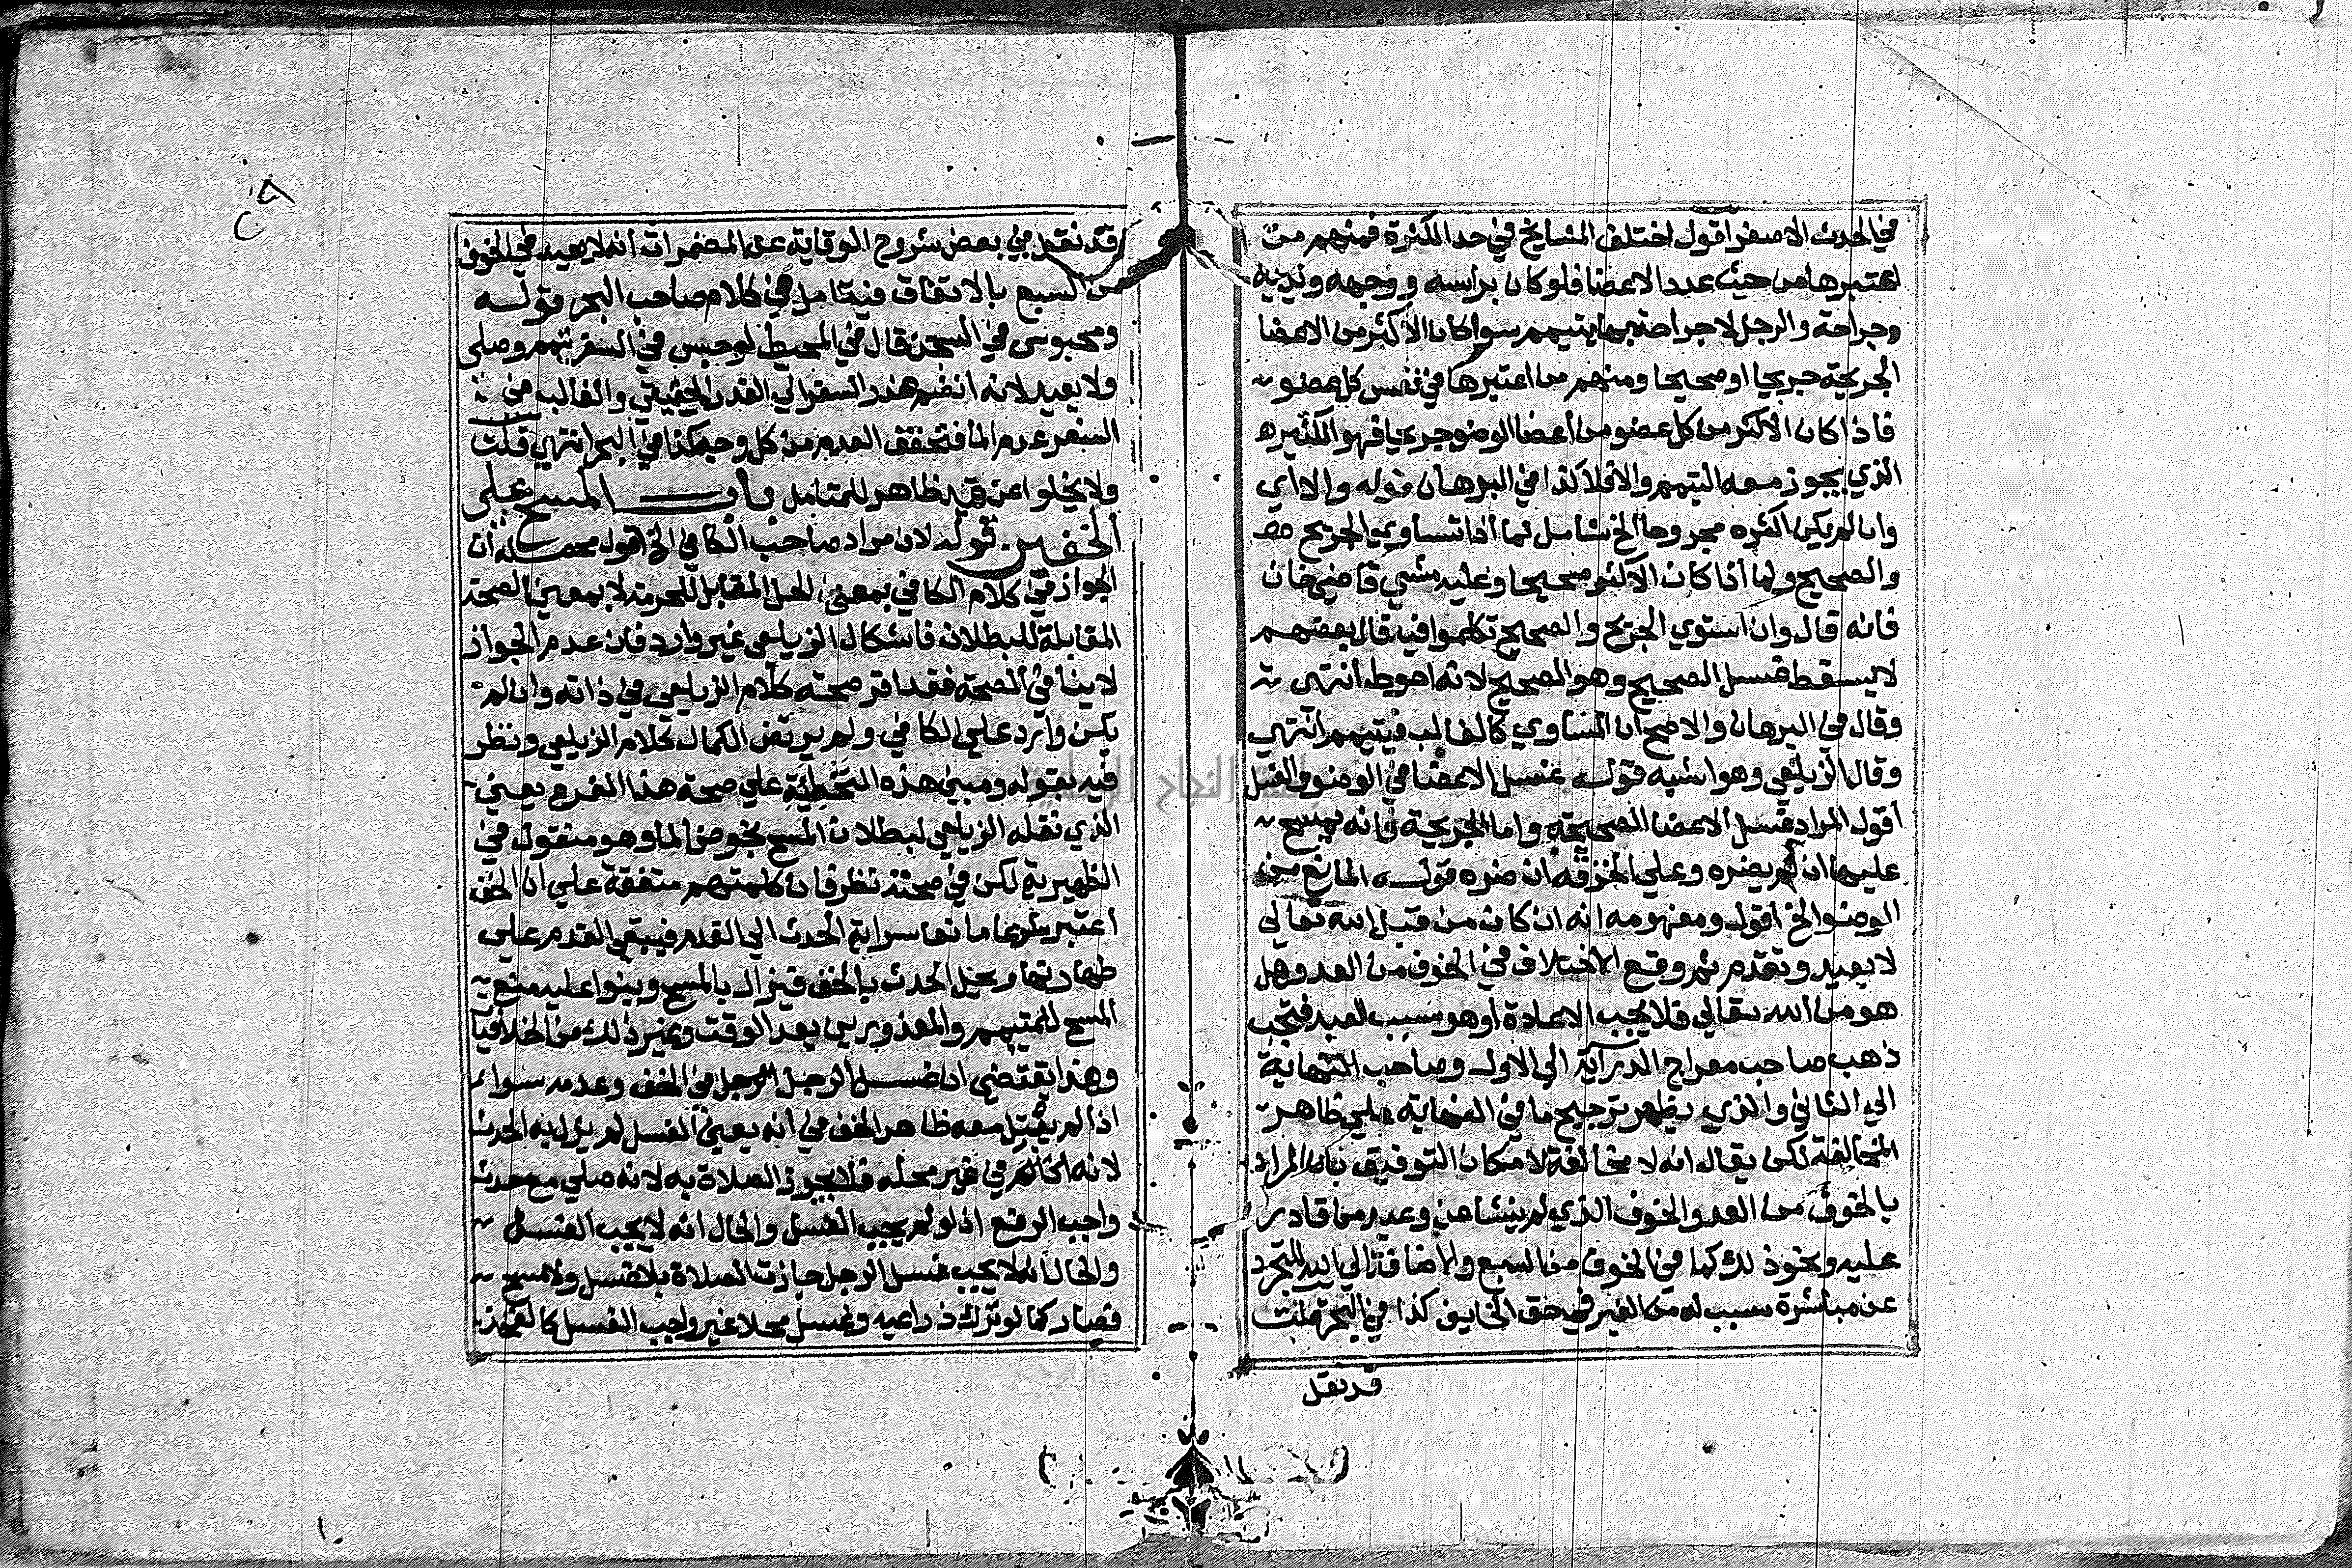 في الحدث الاصغر اقول اختلف المشايخ في حد الكثرة فمنهم من
اعتبرها من حيث عدد الاعضا فلو كان براسه ووجهه ويديه
وجراحة والرجل لا جراحة بها يتيمم سوا كان الاكثر من الاعضا
الجريحة جريحا او صحيحا ومنهم من اعتبرها في نفس كل عضو
فاذا كان الاكثر من كل عضو من اعضا الوضو جريحا فهو الكثير
الذي يجوز معه التيمم والا فلا كذا في البرهان قوله والا اي
وان لم يكن اكثره مجروحا الخ شامل لما اذا تساوي الجريح
والصحيح ولما اذا كان الاكثر صحيحا وعليه مشي قاضي خان
فانه قال وان استوي الجريح والصحيح تكلموا فيه قال بعضهم
لا يسقط غسل الصحيح وهو الصحيح لانه احوط انتهى
وقال في البرهان والاصح ان المساوي كالغالب فيتيمم انتهى
وقال الزيلعي وهو اشبه قوله غسل الاعضا في الوضو والغسل
أقول المراد غسل الاعضا الصحيحة واما الجريحة فانه يمسح
عليها ان لم يضره وعلي الخزقه ان ضره قوله المانع من
الوضوا لخ أقول ومفهومه انه ان كان من قبل الله تعالي
لا يعيد وتقدم ثم وقع الاختلاف في الخوف من العدو هل
هو من الله تعالي فلا يجب الاعادة أو هو سبب العبد فتجب
ذهب صاحب معراج الدراية الي الاول وصاحب النهاية
الي الثاني والذي يظهر ترجيح ما في النهاية علي ظاهر
المخالفة لكن يقال انه لا مخالفة لامكان التوفيق بان المراد
بالخوف من العدو الخوف الذي لم ينشا عن وعيد من قادر
عليه ونحوذ لك كما في الخوف من السبع والاضافة الي الله للتجرد
عن مباشرة سبب له من الغير في حق الخايف كذا في البحر قلت
قد نقل
قد نقل في بعض شروح الوقاية عن المضمرات انه لا يعيد في الخوف
من السبع بالاتفاق فيتامل في كلام صاحب البحر قوله
ومحبوس في السجن قال في المحيط لو حبس في السفر تيمم وصلى
ولا يعيد لانه انضم عذر السفر الي العذر الحقيقي والغالب في
السفر عدم الما فتحقق العدم من كل وجه كذا في البحر انتهي قلت
ولا يخلوا عن قيد ظاهر للمتامل باب المسح على
الخفين قوله لان مراد صاحب الكافي الخ اقول محصله أن
الجواز في كلام الكافي بمعنى الحل المقابل للحرمة لا بمعني الصحة
المقابلة للبطلان فاشكال الزيلعي غير وارد فان عدم الجواز
لا ينافي الصحة فقد اقر صحته كلام الزيلعي في ذاته وان لم
يكن وارد علي الكافي ولم يرتض الكمال كلام الزيلعي ونظر
فيه بقوله ومبني هذه التخطئة علي صحة هذا الفرع يعني
الذي نقله الزيلعي لبطلان المسح بخوض الما وهو منقول في
الظهيرية لكن في صحته نظر فان كلمتهم متفقة علي ان الخف
اعتبر شرعا مانعا سراية الحدث الي القدم فيبقي القدم على
طهارتها ويحل الحدث بالخف فيزال بالمسح وبنوا عليه منع
المسح للمتيمم والمعذورين بعد الوقت وغير ذلك من الخلافيا
وهذا يقتضي ان غسل الرجل في الخف وعدمه سوا
اذا لم يبتل معه ظاهر الخف في انه يعني الغسل لم يزل به الحدث
لانه في غير محله فلا يجوز الصلاة به لانه صلي مع حدث
واجب الرفع اذ لو لم يجب الغسل والحال انه لا يجب الغسل
والحال انه لا يجب غسل الرجل جازت الصلاة بلا غسل ولا مسح
فصار كما لو ترك ذراعيه وغسل محلا غير واجب الغسل كالفخذ